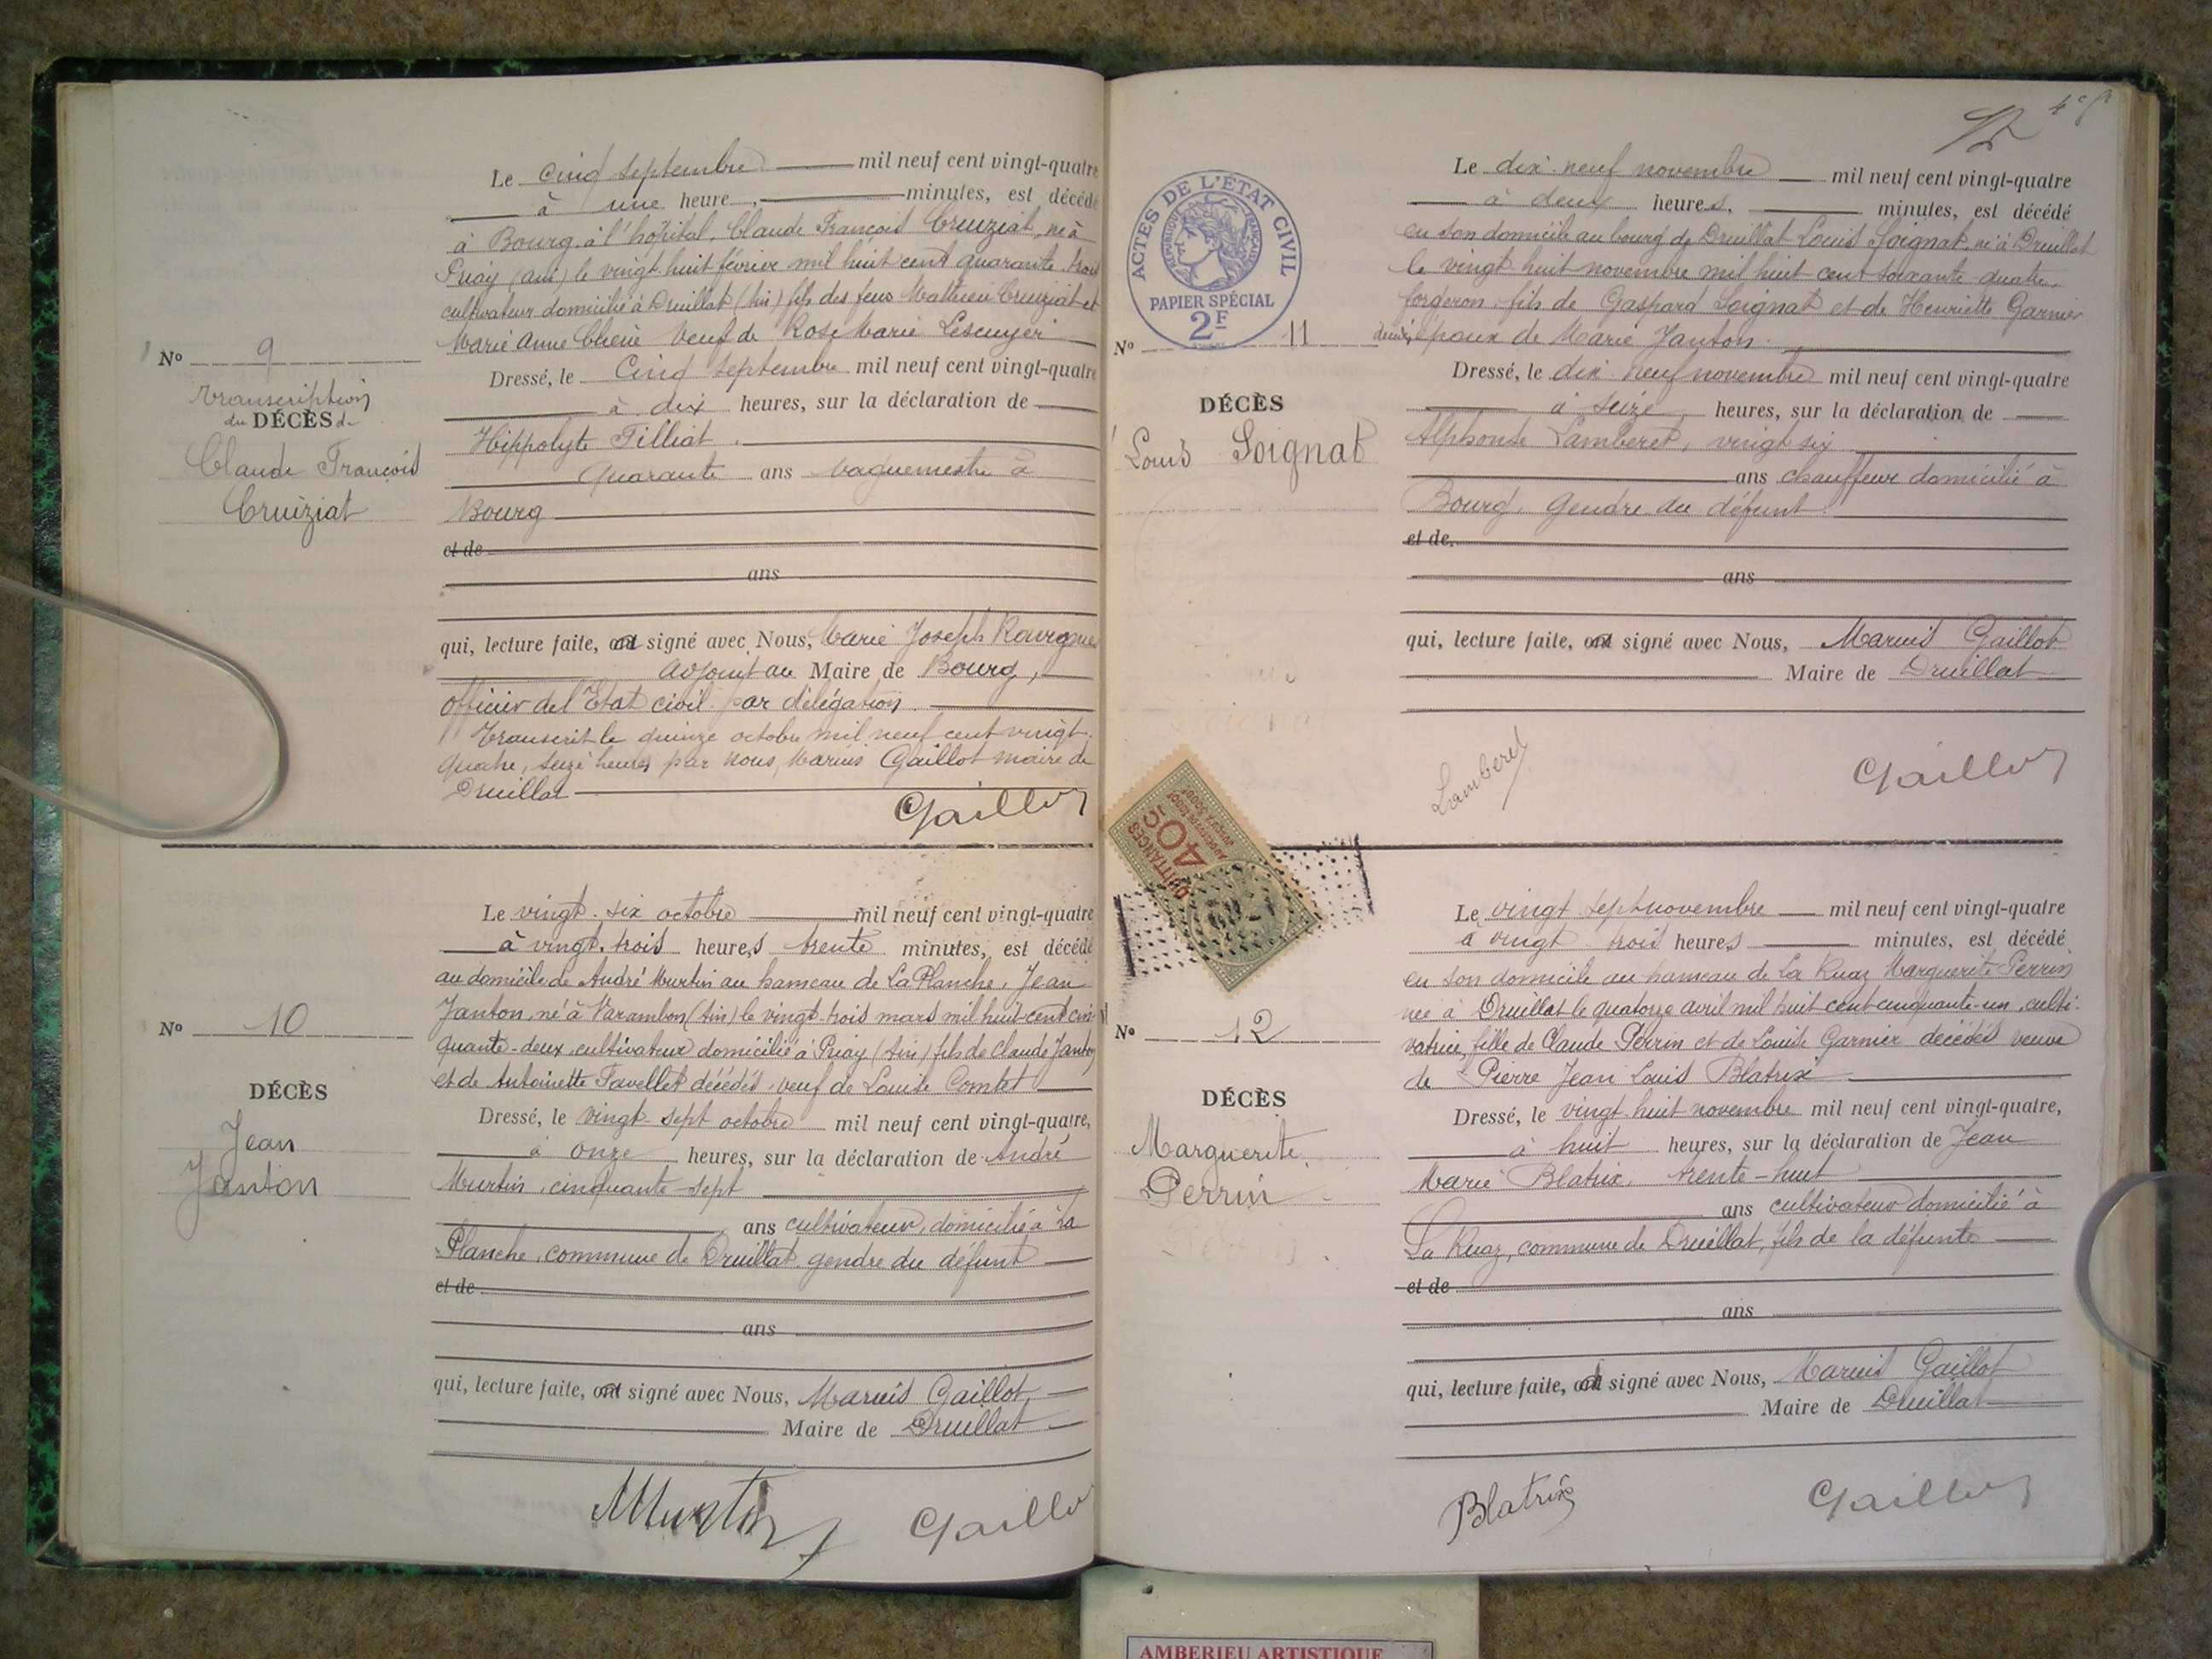 Le cinq septembre mil neuf cent vingt-quatre
à une heure, minutes, est décédé
à Bourg, à l'hôpital, Claude François Cruiziat, né à
Priay (Ain) le vingt huit février mil huit cent quarante trois
cultivateur domicilié à Druillat (Ain) fils des feus Mathieu Cruiziat et
Marie Anne veuf de Rose Marie Lescuyer
N° 9
Transcription
du DÉCÈS de
Claude François
Cruiziat
Dressé, le Cinq septembre mil neuf cent vingt-quatre
à dix heures, sur la déclaration de
Hippolyte Filliat
quarante ans vaguemestre à
Bourg
et de
ans
qui, lecture faite, a signé avec Nous, Marie Joseph
adjoint au Maire de Bourg,
officier de l'Etat civil par délégation
Transcrit le quinze octobre mil neuf cent vingt
quatre, seize heures par nous, Marius Gaillot maire de
Druillat
Gaillot
Le vingt-six octobre mil neuf cent vingt-quatre
à vingt-trois heures trente minutes, est décédé
au domicile de André Murtin au hameau de La Planche, Jean
Janton, né à Varambon (Ain) le vingt-trois mars mil huit cent cin-
quante-deux, cultivateur domicilié à Priay (Ain) fils de Claude Janton
et de Antoinette Favellet décédés, veuf de Louise Comtet
N° 10
DÉCÈS
Jean
Janton
Dressé, le vingt-sept octobre mil neuf cent vingt-quatre,
à onze heures, sur la déclaration de André
Murtin, cinquante-sept
ans cultivateur, domicilié à La
Planche, commune de Druillat, gendre du défunt
et de
ans
qui, lecture faite, a signé avec Nous, Marius Gaillot
Maire de Druillat
Murtin Gaillot
12
ACTES DE L'ÉTAT CIVIL
RÉPUBLIQUE FRANÇAISE
PAPIER SPÉCIAL
2F
Le dix-neuf novembre mil neuf cent vingt-quatre
à deux heures, minutes, est décédé
en son domicile au bourg de Druillat Louis Soignat, né à Druillat
le vingt huit novembre mil huit cent soixante quatre,
forgeron, fils de Gaspard Soignat et de Henriette Garnier
époux de Marie Janton
N° 11
DÉCÈS
Louis Soignat
Dressé, le dix-neuf novembre mil neuf cent vingt-quatre
à seize heures, sur la déclaration de
Alphonse Lamberet, vingt six
ans chauffeur domicilié à
Bourg, gendre du défunt
et de
ans
qui, lecture faite, a signé avec Nous, Marius Gaillot
Maire de Druillat
Lamberet Gaillot
QUITTANCES
40c
Le vingt sept novembre mil neuf cent vingt-quatre
à vingt trois heures minutes, est décédé
en son domicile au hameau de La Ruaz Marguerite Perrin
née à Druillat le quatorze avril mil huit cent cinquante-un, culti-
vatrice, fille de Claude Perrin et de Louise Garnier décédés veuve
de Pierre Jean Louis Blatrix
N° 12
DÉCÈS
Marguerite
Perrin
Dressé, le vingt-huit novembre mil neuf cent vingt-quatre,
à huit heures, sur la déclaration de Jean
Marie Blatrix, trente-huit
ans cultivateur domicilié à
La Ruaz, commune de Druillat, fils de la défunte
et de
ans
qui, lecture faite, a signé avec Nous, Marius Gaillot
Maire de Druillat
Blatrix Gaillot
AMBERIEU ARTISTIQUE